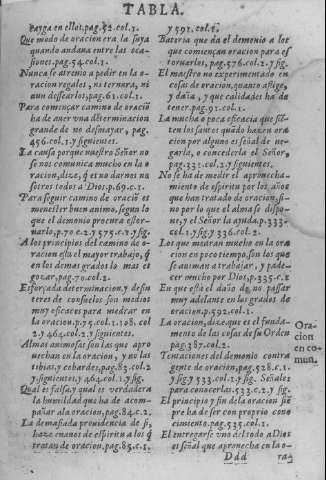 TABLA.
cayga en ellos, pag. 52. col. 1.
Que modo de oracion era la suya
quando andaua entre las oca
siones. pag. 54. col. 1.
Nunca se atreuio a pedir en la o-
racion regalos, ni ternura, ni
aun dessearlos, pag. 61. col. 1.
Para començar camino de oraciõ
ha de auer vna dterminacion
grande de no desmayar, pag.
456. col. 1. y siguientes.
La causa porque nuestro Señor no
se nos comunica mucho en la o
racion, dize, q̃ es no darnos no
sotros todos a Dios. p. 69. c. 1.
Para seguir camino de oraciõ es
menester buen animo, segun lo
que el demonio procura estor-
uarlo, p. 70. c. 2. y 575. c. 2. y sig.
A los principios del camino de o-
racion esta el mayor trabajo, q̃
en los demas grados lo mas es
gozar, pag. 70. col. 2.
Esforçada determinacion, y desin
teres de consuelos son medios
muy eficazes para medrar en
la oracion. p. 75. col. 1. 108. col
2. y 464. col. 2. y siguientes.
Almas animosas son las que apro
uechan en la oracion, y no las
tibias y cobardes, pag. 83. col. 2
y siguientes, y 464. col. 1. y sig.
Qual es falsa, y qual es verdadera
la humildad que ha de acom-
pañar a la oracion, pag. 84. c. 2.
La demasiada prouidencia de si,
haze enanos de espiritu a los q̃
tratan de oracion, pag. 85. c. 1.
y 591. col. 1.
Bateria que da el demonio a los
que comiençan oracion para es
toruarlos, pag. 576. col. 2. y sig.
El maestro no experimentado en
cosas de oracion, quanto aflige,
y daña, y que calidades ha de
tener. pag. 91. col. 1.
La mucha o poca eficacia que siẽ-
ten los santos quãdo hazen ora
cion por alguno es señal de ne-
garla, o concederla el Señor,
pag. 331. col. 2. y siguientes.
No se ha de medir el aprouecha-
miento de espiritu por los años
que han tratado de oracion, si-
no por lo que el alma se dispo-
ne, y el Señor la ayuda. p. 333.
col. 1. y sig. y 336. col. 2.
Los que medran mucho en la ora
cion en poco tiempo, son los que
se animan a trabajar, y pade-
cer mucho por Dios, p. 335. c. 2
En que està el daño de no passar
muy adelante en los grados de
oracion. p. 592. col. 1.
La oracion, dize, que es el funda-
mento de las cosas de su Orden
pag. 387. col. 2.
Tentaciones del demonio contra
gente de oracion, pag. 528. c. 1.
y sig. y 533. col. 1. y sig. Señales
para conocerlas. 533. c. 2. y sig.
El principio y fin de la oracion siẽ
pre ha de ser con proprio cono
cimiento. pag. 535. col. 1.
El entregarse vno del todo a Dios
es señal que aprouecha en la o-
Ora-
cion
en co-
mun.
Ddd